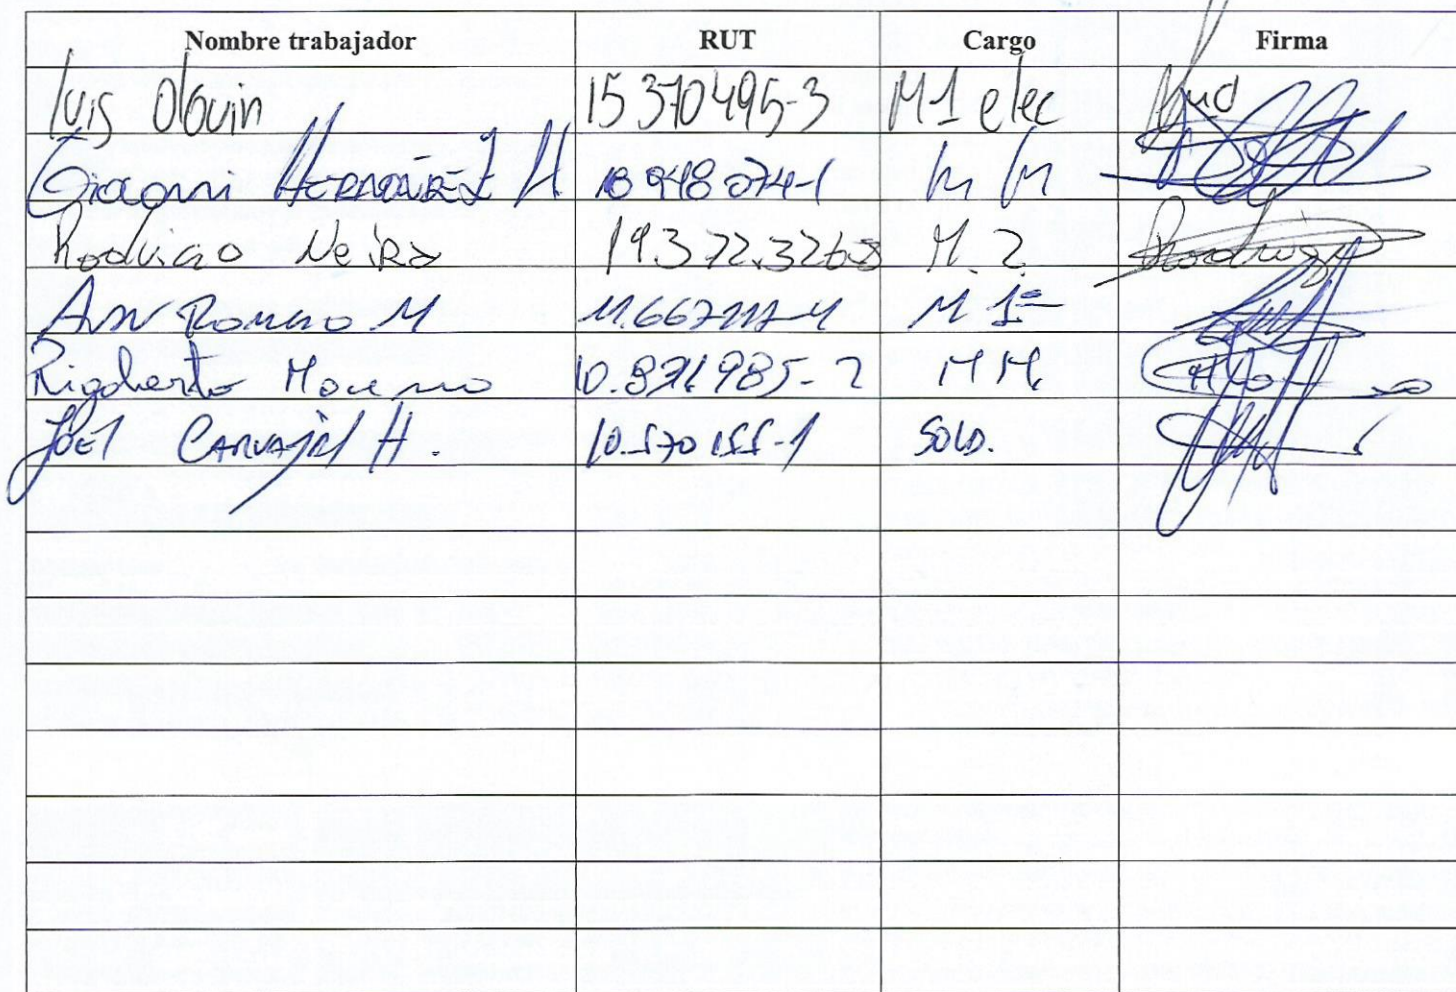 Nombre trabajador RUT Cargo Firma
Luis Olguin 15370495-3 M1 elec
Giovanni HERNÁNDEZ H M M
Rodrigo Neira 19.372.326-8 M. 2.
ROMERO M M 1º
Rigoberto Moreno 10.871.985-2 M M.
JOEL CARVAJAL H. 10.570155-1 SOLD.